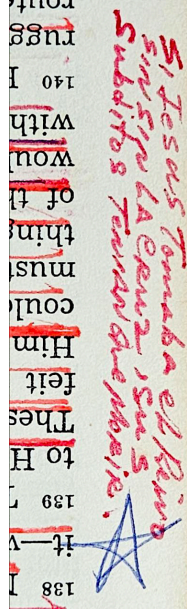 138
it—v
139
to H
Thes
felt
Him
coul
must
thing
of tl
woul
with
140
rugg
route
Si Jesus Tomaba el Reino
sin La Cruz, sus
Subditos